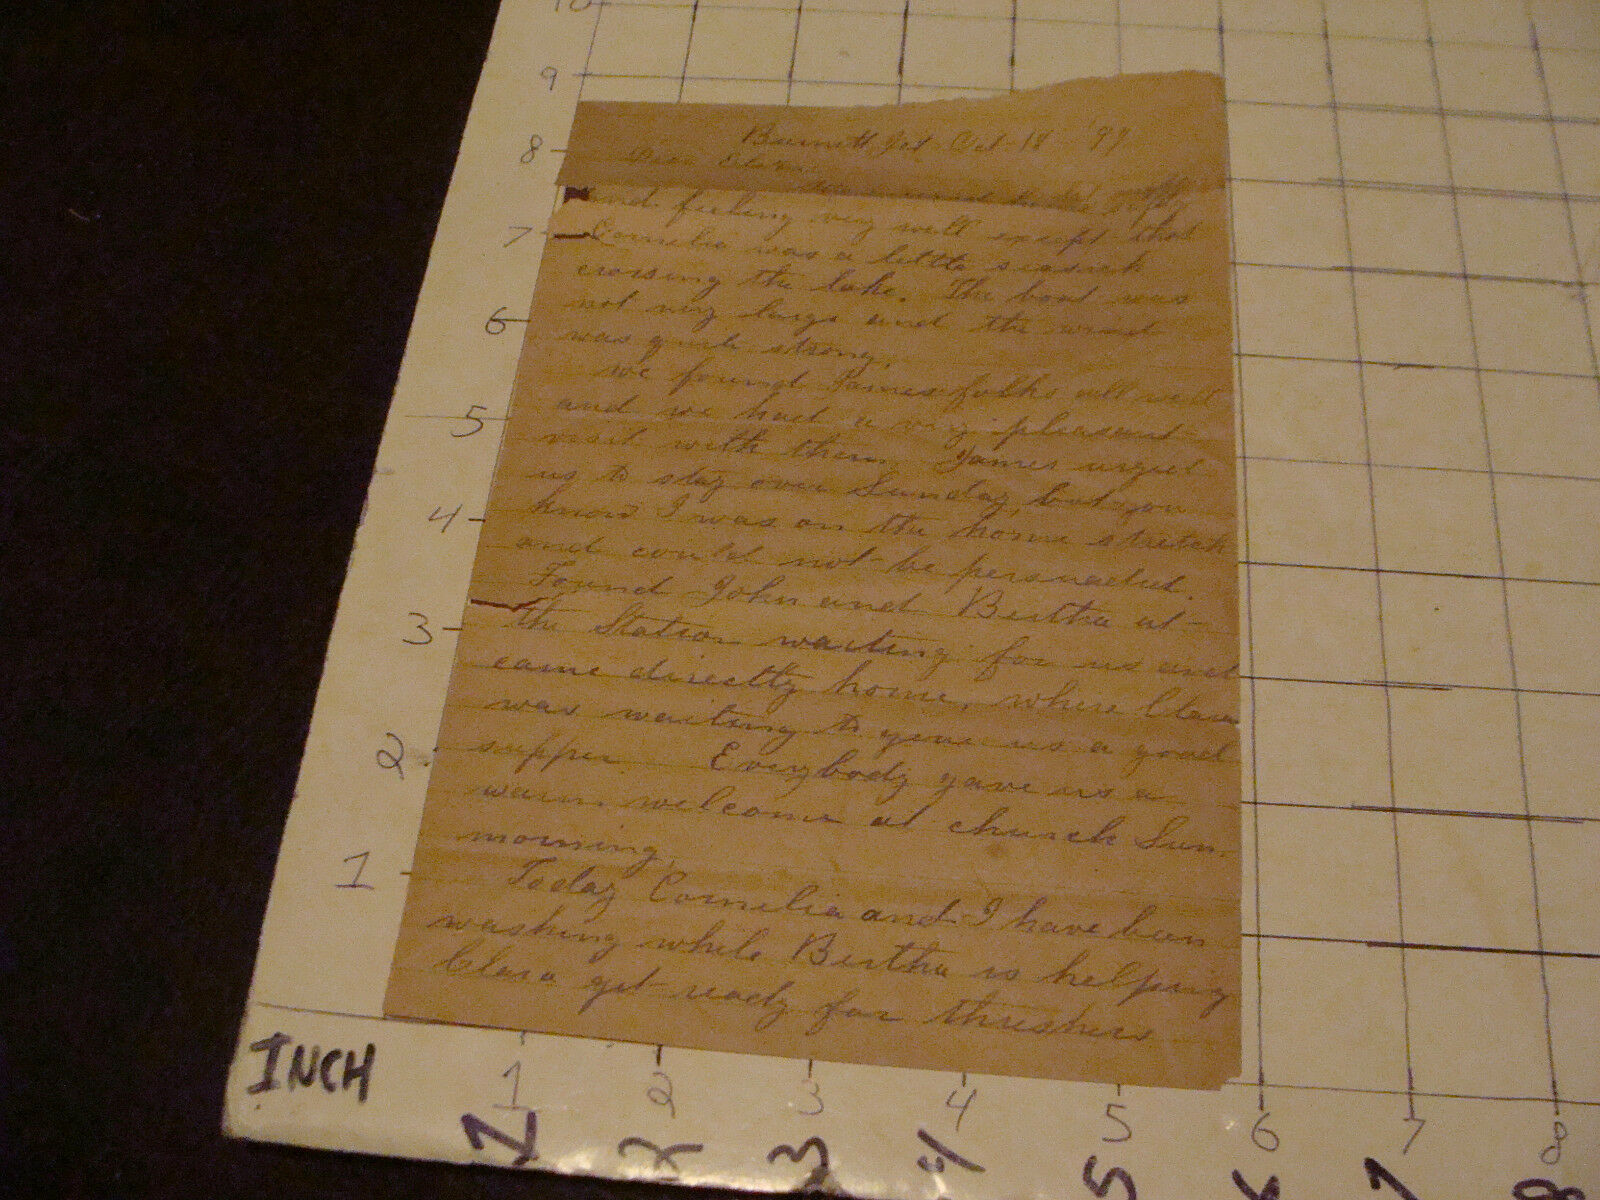 10
9
8
7
6
5
4
3
2
1
Burnett Jct Oct-18 '97
Dear
and feeling very well except that
Cornelia was a little seasick
crossing the lake. The boat was
not very large and the wind
was quite strong.
We found James folks all well
and we had a very pleasant
visit with them. James urged
us to stay over Sunday, but you
know I was on the home stretch
and could not be persuaded.
Found John and Bertha at
the Station waiting for us and
came directly home, where Clara
was waiting to give us a good
supper. Everybody gave us a
warm welcome at church Sun.
morning.
Today Cornelia and I have been
washing while Bertha is helping
Clara get ready for threshers
INCH
1 2 3 4 5 6 7 8
1 2 3 4 5 6 7 8